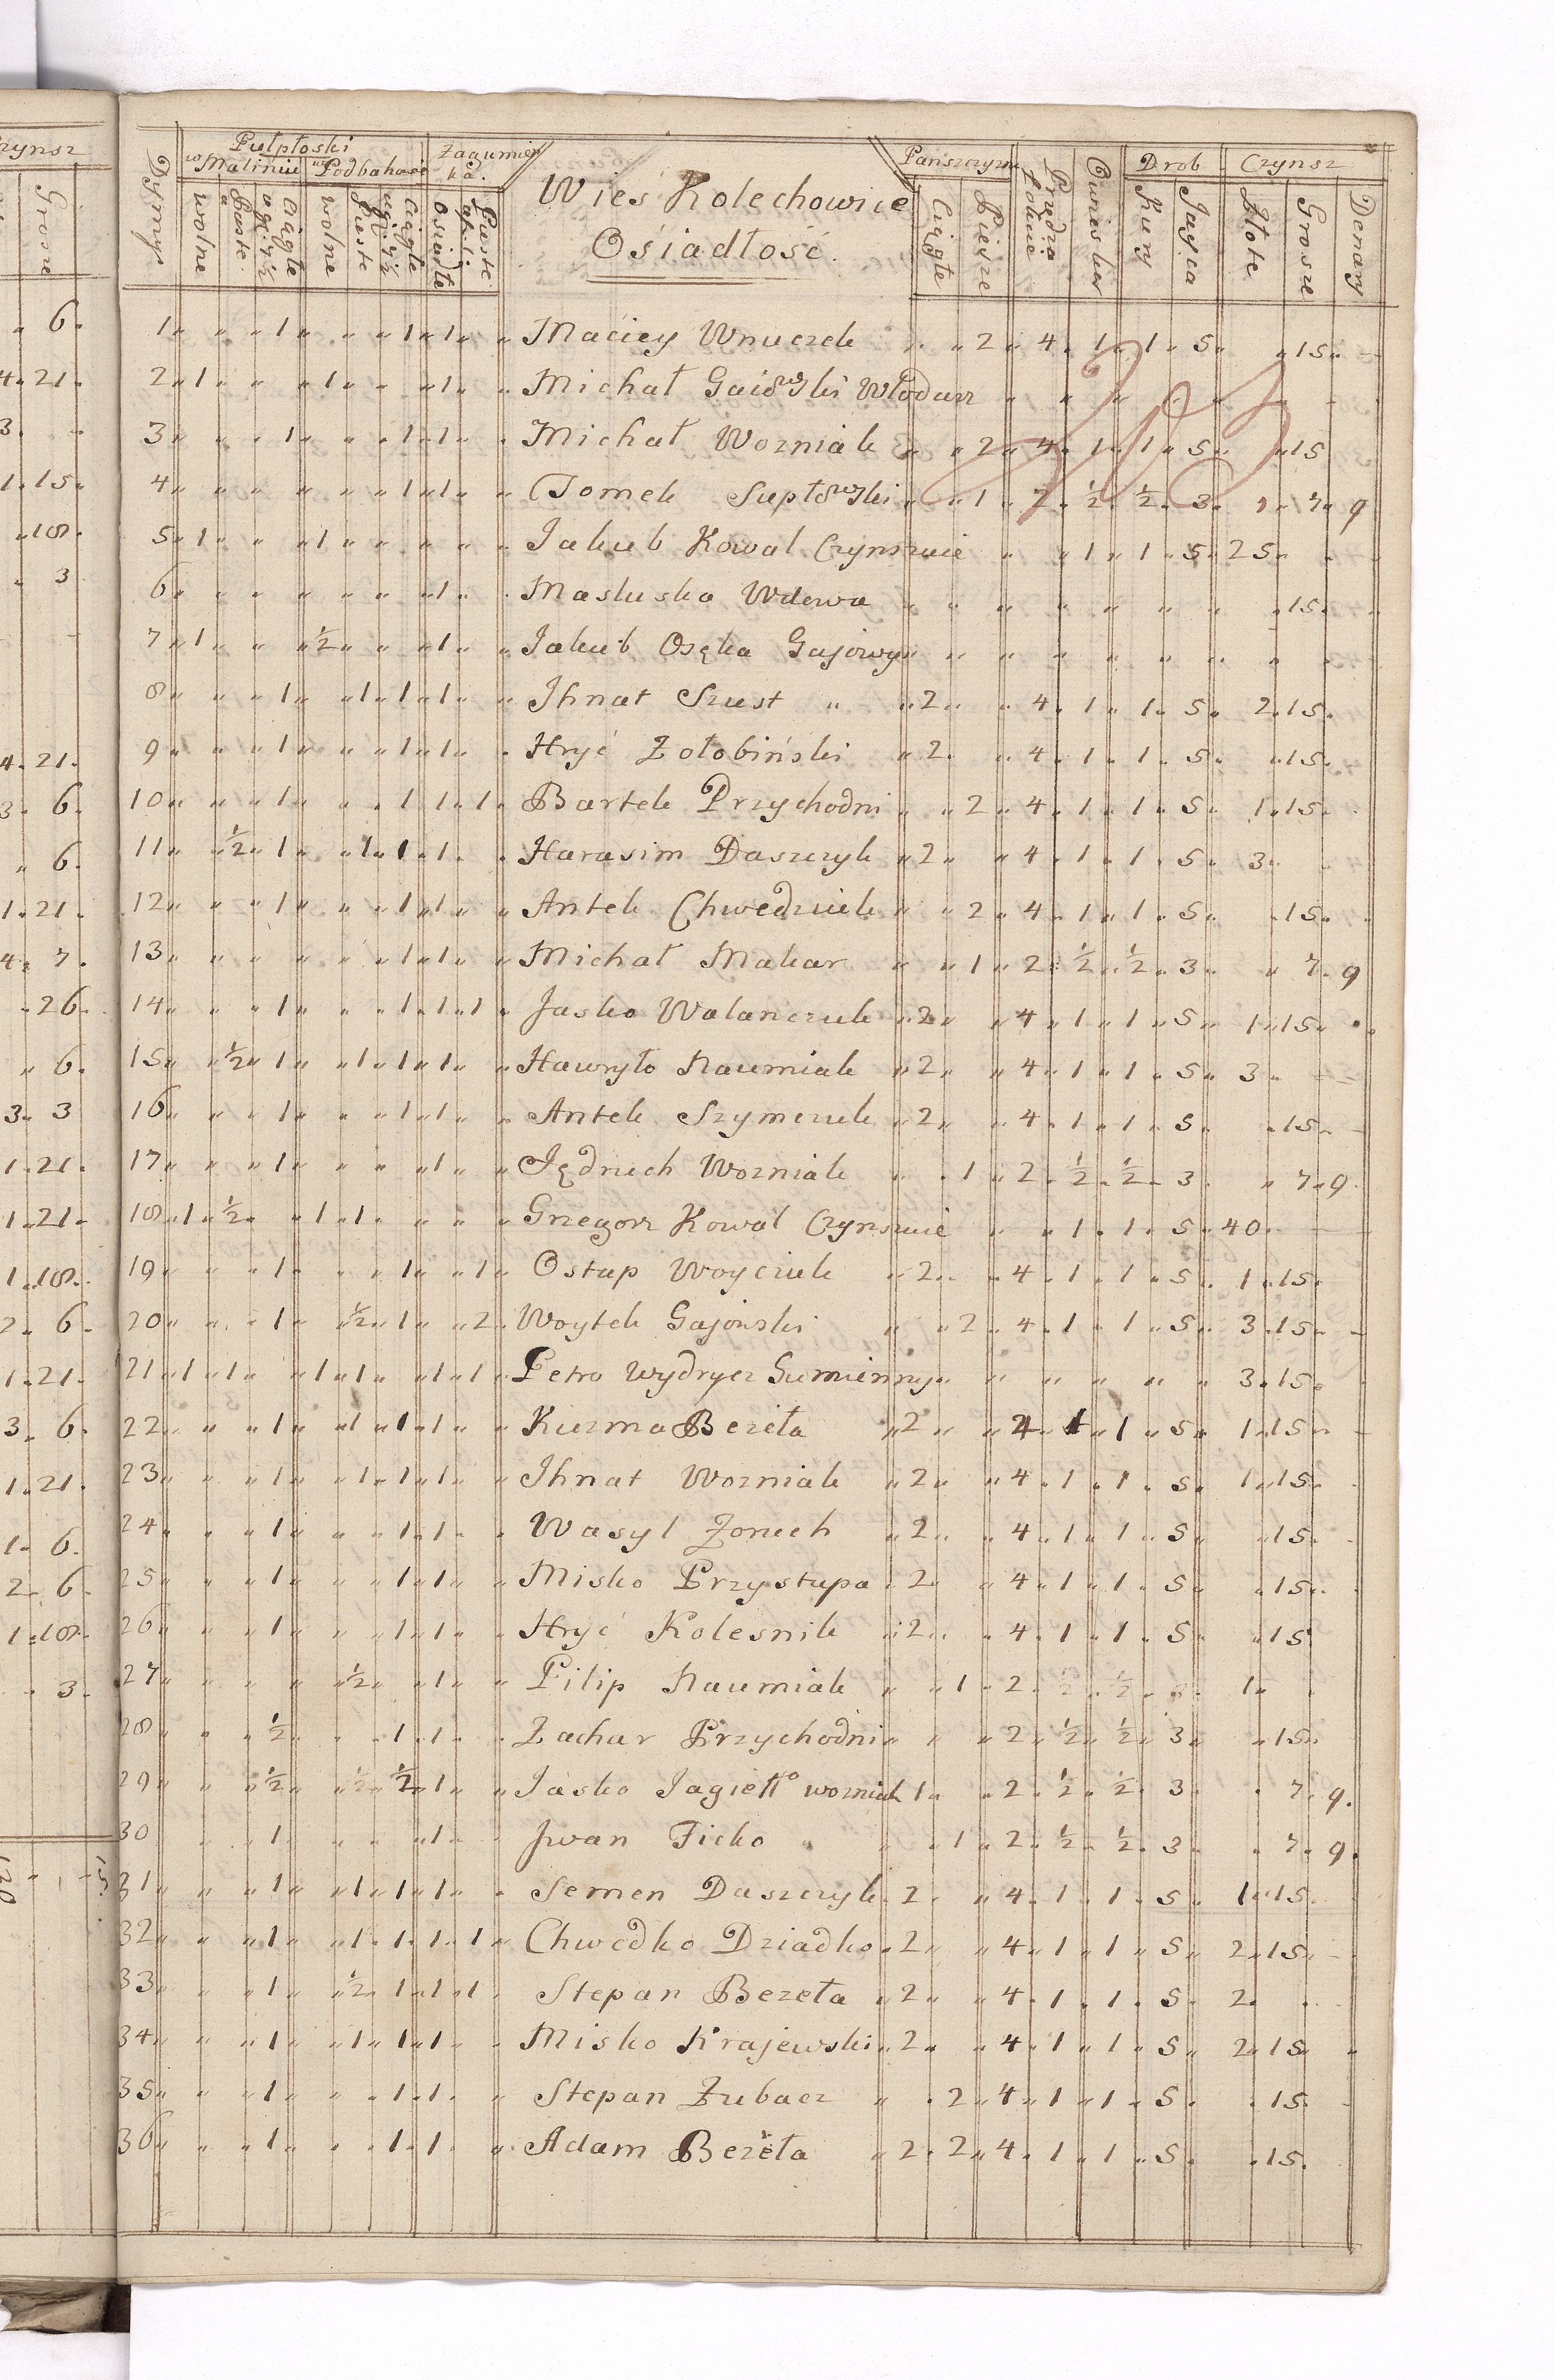 Czynsz
Grosze
Dymy
Pułpłoski
w Malinie
w Podbahnie
Zagumien
ka.
wolne
Puste
Ciągłe
wolne
Pieste
Ciągłe
Osiadłe
Puste
Wieś Kolechowice
Osiadłość.
Pańszczyzna
Ciągłe
Piesze
Przędza
Owies
Drob
Kury
Jayca
Czynsz
Złote
Grosze
Denary
1 " " " 1 " " " " 1 " 1 " " Maciey Wnuczek " " 2 " 4 " 1 " 1 " 5 " " 15 " -
2 " 1 " " " 1 " " " 1 " " Michał Gaiewski Włodarz " " " " " " "
3 " " " 1 " " " 1 " 1 " " Michał Wozniak " " 2 " 4 " 1 " 1 " 5 " " 15
4 " " " " " " " 1 " 1 " " Tomek " " 1 " 2 " ½ " ½ " 3 " " 7 " 9
5 " 1 " " " 1 " " " " " " Jakub Kowal Czynszuie " " 1 " 1 " 5 " 25 " "
6 " " " " " " " " 1 " " Wdowa " " " " " " " " 15 "
7 " 1 " " " ½ " " " 1 " " Jakub Osęka Gajowy " " " " " " " " "
8 " " " 1 " " 1 " 1 " 1 " " Ihnat Szust " " 2 " " 4 " 1 " 1 " 5 " 2 " 15 "
9 " " " 1 " " " 1 " 1 " " Hryć Zołobiński " 2 " " 4 " 1 " 1 " 5 " " 15 "
10 " " " 1 " " " 1 " 1 " 1 " Bartek Przychodni " " 2 " 4 " 1 " 1 " 5 " 1 " 15 "
11 " " ½ " 1 " " 1 " 1 " 1 " " Harasim Daszczyk " 2 " " 4 " 1 " 1 " 5 " 3 " "
12 " " " 1 " " " 1 " 1 " " Antek Chwedziuk " " 2 " 4 " 1 " 1 " 5 " " 15 "
13 " " " " " " " 1 " 1 " " Michał Makar " " 1 " 2 " ½ " ½ " 3 " " 7 " 9
14 " " " 1 " " " 1 " 1 " 1 " Jasko Walanczuk " 2 " " 4 " 1 " 1 " 5 " 1 " 15 "
15 " " ½ " 1 " " 1 " 1 " 1 " " Hawryło Naumiak " 2 " " 4 " 1 " 1 " 5 " 3 " -
16 " " " 1 " " " 1 " 1 " " Antek Szymczuk " 2 " " 4 " 1 " 1 " 5 " " 15 "
17 " " " 1 " " " " 1 " " Jędruch Wozniak " " 1 " 2 " ½ " ½ " 3 " " 7 " 9
18 " 1 " ½ " " 1 " 1 " " " " Grzegorz Kowal Czynszuie " " 1 " 1 " 5 " 40 "
19 " " " 1 " " " 1 " " 1 " Ostap Woyciuk " 2 " " 4 " 1 " 1 " 5 " 1 " 15
20 " " " 1 " " ½ " 1 " " 2 " Woytek Gajowski " " 2 " 4 " 1 " 1 " 5 " 3 " 15 "
21 " 1 " 1 " " 1 " 1 " " 1 " 1 " Petro Wydrycz Gumienny " " " " " " 3 " 15 "
22 " " " 1 " " 1 " 1 " 1 " " Kuzma Bezeła " 2 " " 4 " 1 " 1 " 5 " 1 " 15 "
23 " " " 1 " " 1 " 1 " 1 " " Ihnat Wozniak " 2 " " 4 " 1 " 1 " 5 " 1 " 15 "
24 " " " 1 " " " 1 " 1 " " Wasyl Zoruch " 2 " " 4 " 1 " 1 " 5 " " 15 "
25 " " " 1 " " " 1 " 1 " " Misko Przystupa " 2 " " 4 " 1 " 1 " 5 " " 15 "
26 " " " 1 " " " 1 " 1 " " Hryć Kolesnik " 2 " " 4 " 1 " 1 " 5 " " 15
27 " " " " " ½ " " 1 " " Pilip Naumiak " " 1 " 2 " ½ " ½ " " 1 " "
28 " " " ½ " " " 1 " 1 " " Zachar Przychodni " " " 2 " ½ " ½ " 3 " " 15 "
29 " " " ½ " " ½ " ½ " 1 " " Jasko Jagiełło wozniak 1 " " 2 " ½ " ½ " 3 " 7 " 9
30 " " " 1 " " " " 1 " " Jwan Ficko " " 1 " 2 " ½ " ½ " 3 " " 7 " 9
31 " " " 1 " " 1 " 1 " 1 " " Semen Daszczyk " 2 " " 4 " 1 " 1 " 5 " 1 " 15
32 " " " 1 " " 1 " 1 " 1 " 1 " Chwedko Dziadko " 2 " " 4 " 1 " 1 " 5 " 2 " 15 "
33 " " " 1 " " ½ " 1 " 1 " 1 " Stepan Bezeła " 2 " " 4 " 1 " 1 " 5 " 2 " "
34 " " " 1 " " 1 " 1 " 1 " " Misko Krajewski " 2 " " 4 " 1 " 1 " 5 " 2 " 15 "
35 " " " 1 " " " 1 " 1 " " Stepan Zubacz " " 2 " 4 " 1 " 1 " 5 " " 15 "
36 " " " 1 " " " 1 " 1 " " Adam Bezeła " 2 " 2 " 4 " 1 " 1 " 5 " " 15 "